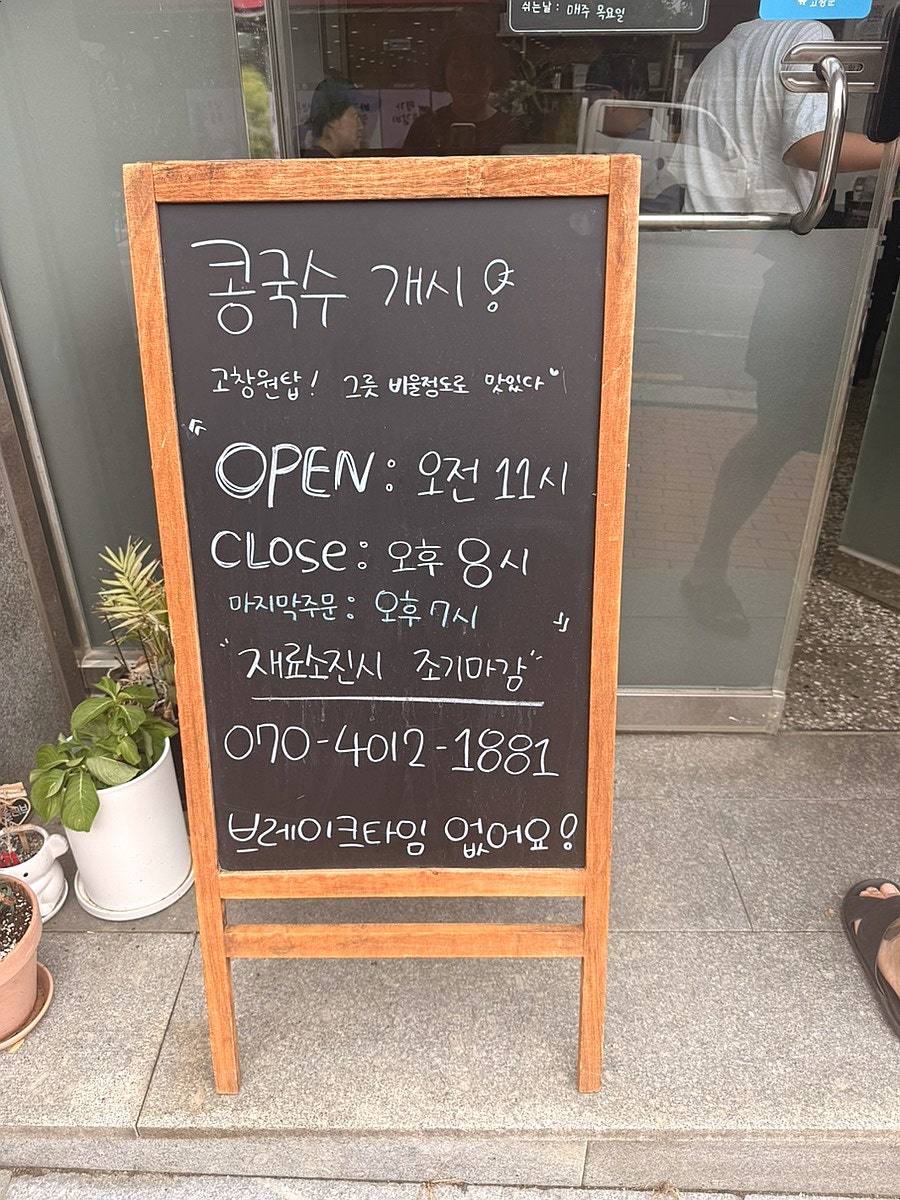 쉬는날 : 매주 목요일
콩국수 개시!
고창원탑! 그릇 비울정도로 맛있다
"
OPEN : 오전 11시
CLOSe : 오후 8시
마지막주문 : 오후 7시
"
"재료소진시 조기마감"
070-4012-1881
브레이크타임 없어요!